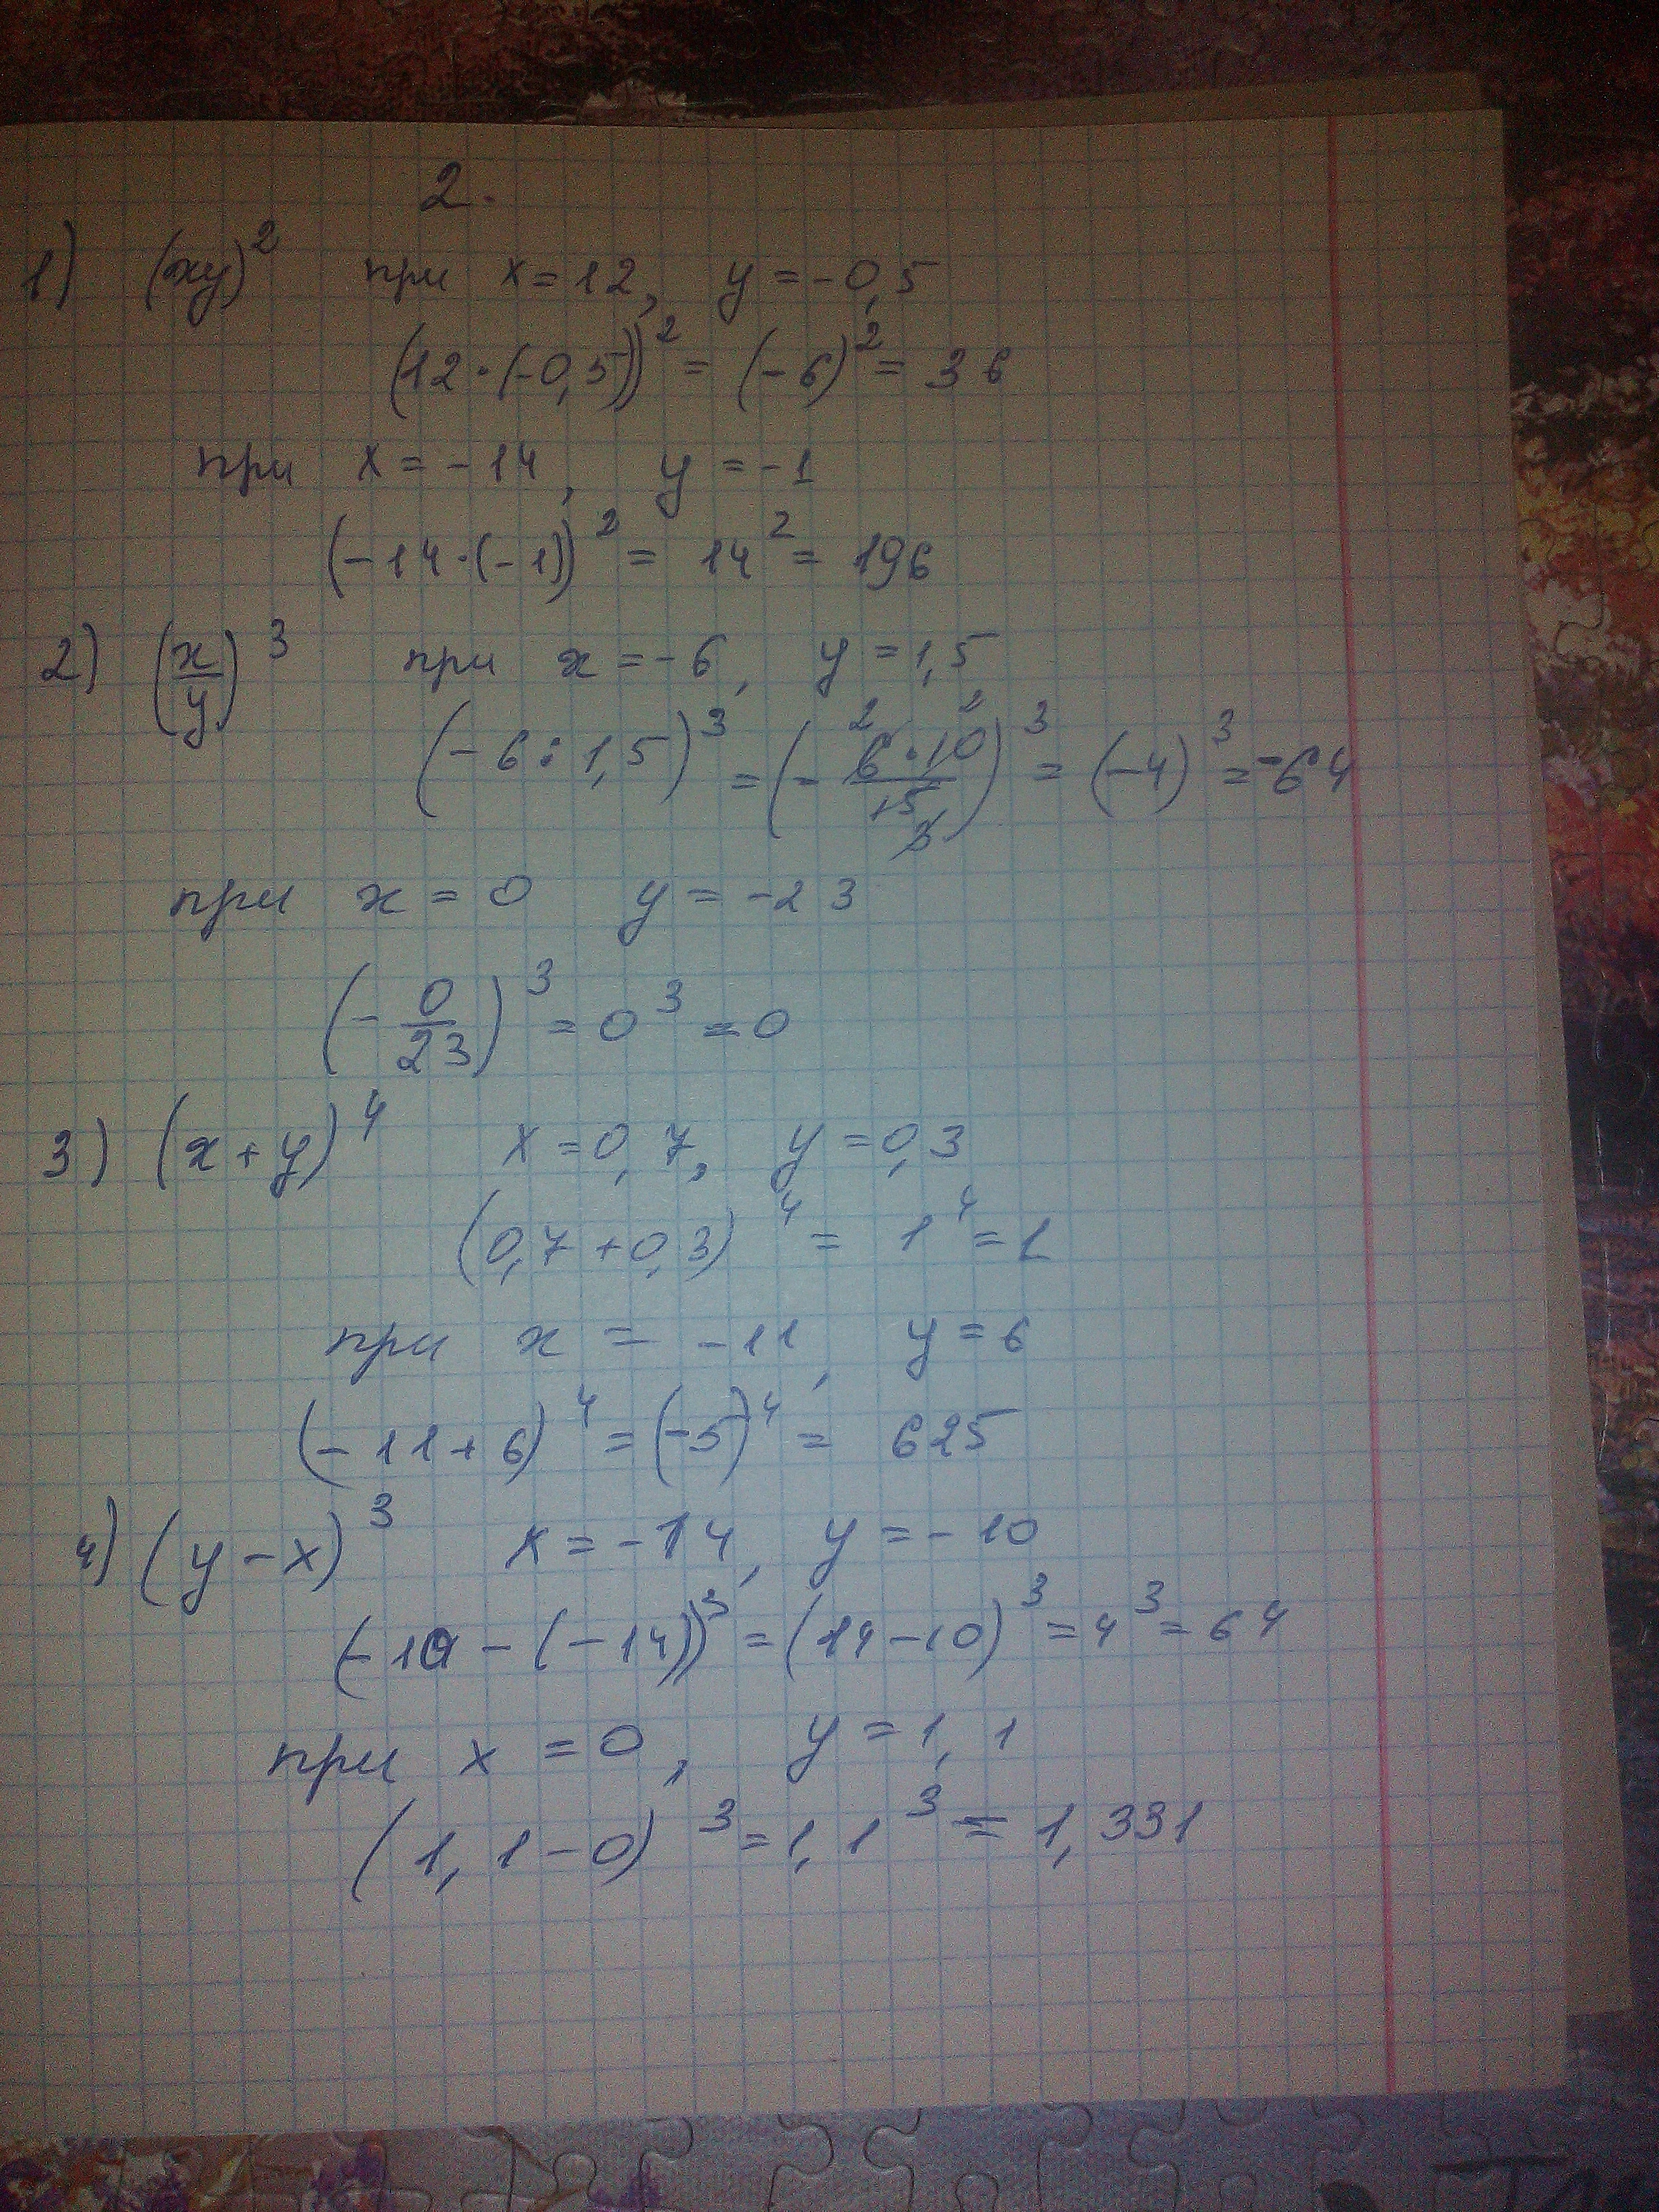 2.
1) (xy)² при x = 12, y = -0,5
(12·(-0,5))² = (-6)² = 36
при x = -14, y = -1
(-14·(-1))² = 14² = 196
2) (x/y)³ при x = -6, y = 1,5
(-6 : 1,5)³ = (- 6·10/15)³ = (-4)³ = -64
при x = 0 y = -23
(- 0/23)³ = 0³ = 0
3) (x+y)⁴ x = 0,7, y = 0,3
(0,7 + 0,3)⁴ = 1⁴ = 1
при x = -11, y = 6
(-11 + 6)⁴ = (-5)⁴ = 625
4) (y - x)³ x = -14, y = -10
(-10 - (-14))³ = (14 - 10)³ = 4³ = 64
при x = 0, y = 1,1
(1,1 - 0)³ = 1,1³ = 1,331